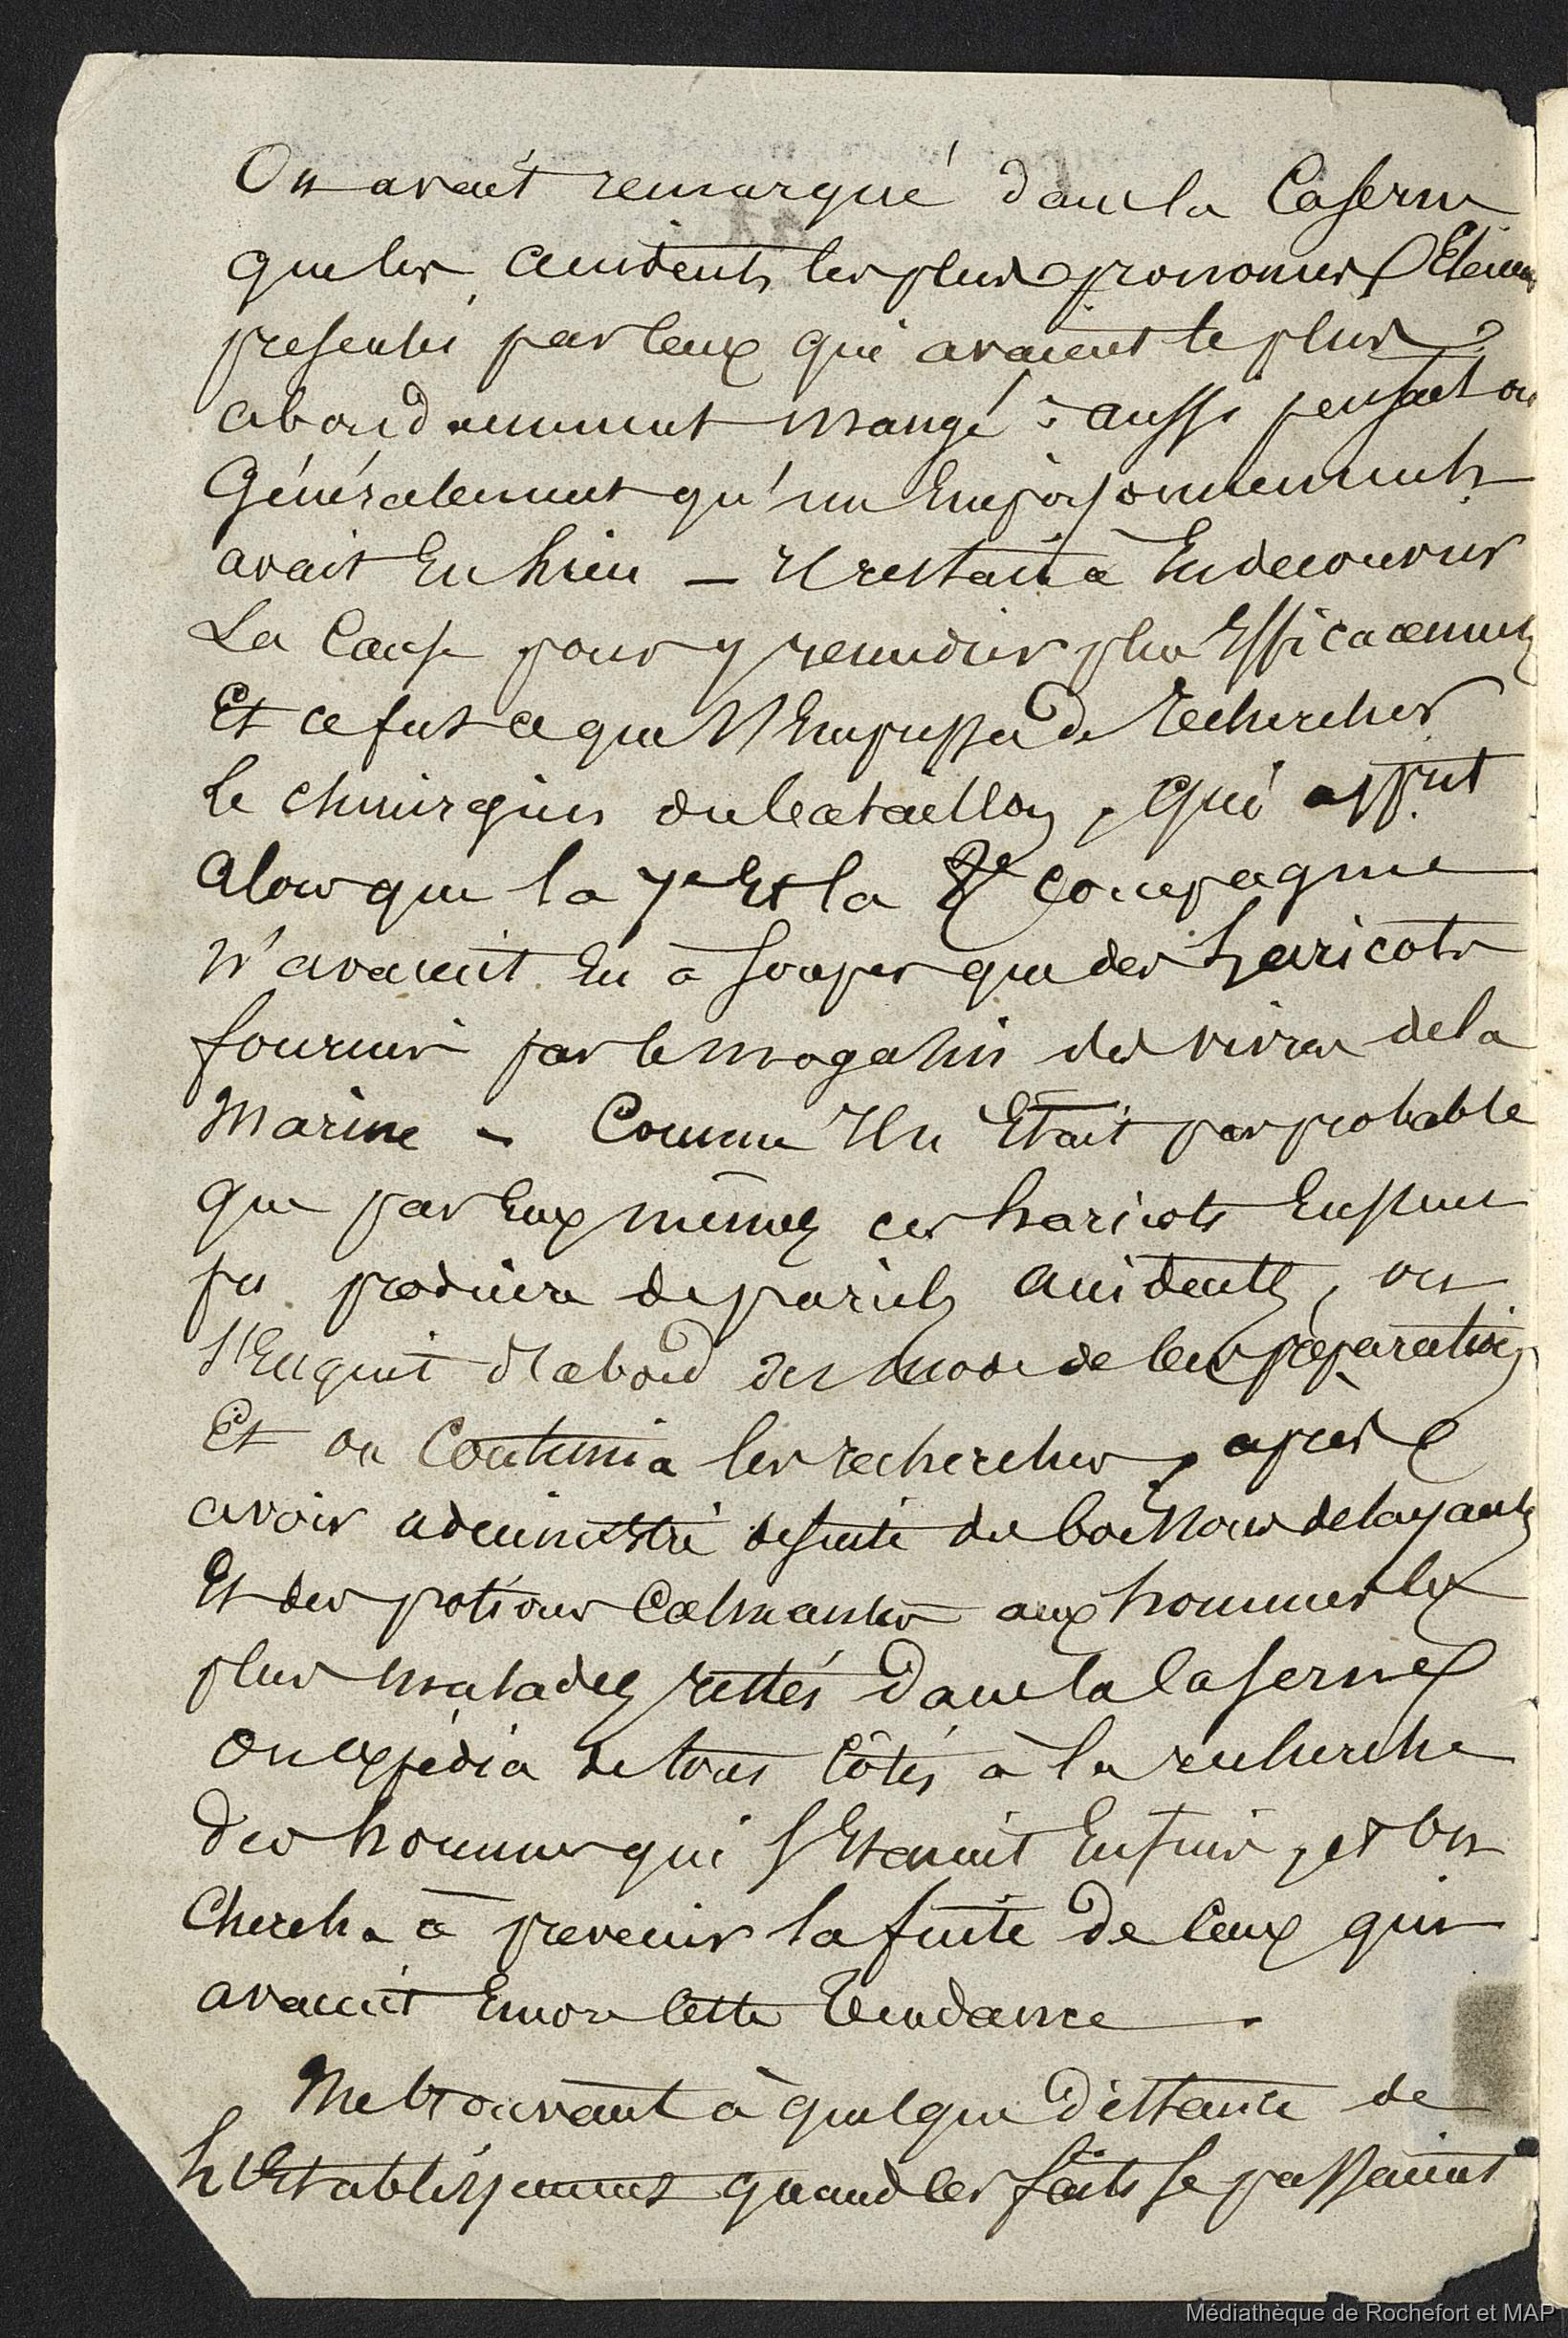 On avait remarqué dans la Caserne
que les accidents les plus prononcés Etaient
presentés par Ceux qui avaient le plus
abondamment mangé : aussi pensait on
Généralement qu'un Empoisonnement
avait Eu lieu — Il restait à En decouvrir
La Cause pour y remedier plus Efficacement
Et ce fut ce que S'Empressa de rechercher
Le chirurgien du bataillon, qui apprit
alors que la 7e Et la 8e Compagnie
N'avaient Eu à souper que des haricots
fournis par le magasin des vivres de la
Marine - Comme Il n'Etait pas probable
que par Eux mêmes ces haricots Eussent
pu produire de pareils accidents, on
S'Enquit d'abord du mode de leur préparation
Et on Continua les recherches, après
avoir administré de suite des boissons delayantes
Et des potions Calmantes aux hommes les
plus malades restés dans la Caserne
On expédia de tous Côtés à la recherche
des hommes qui S'Etaient Enfuis, et On
Chercha à prevenir la fuite de Ceux qui
avaient Encore Cette Tendance.
Me trouvant à quelque distance de
L'Etablissement quand les faits se passaient
Médiathèque de Rochefort et MAP